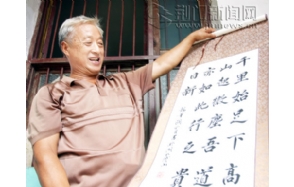 荆门新闻网
千里始足下高
山起微塵吾道
亦如此行之貴
日新